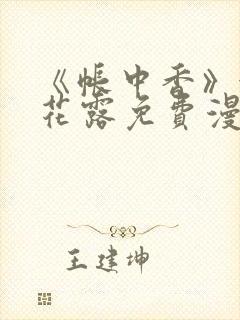 《帐中香》
花露免费漫
王建坤